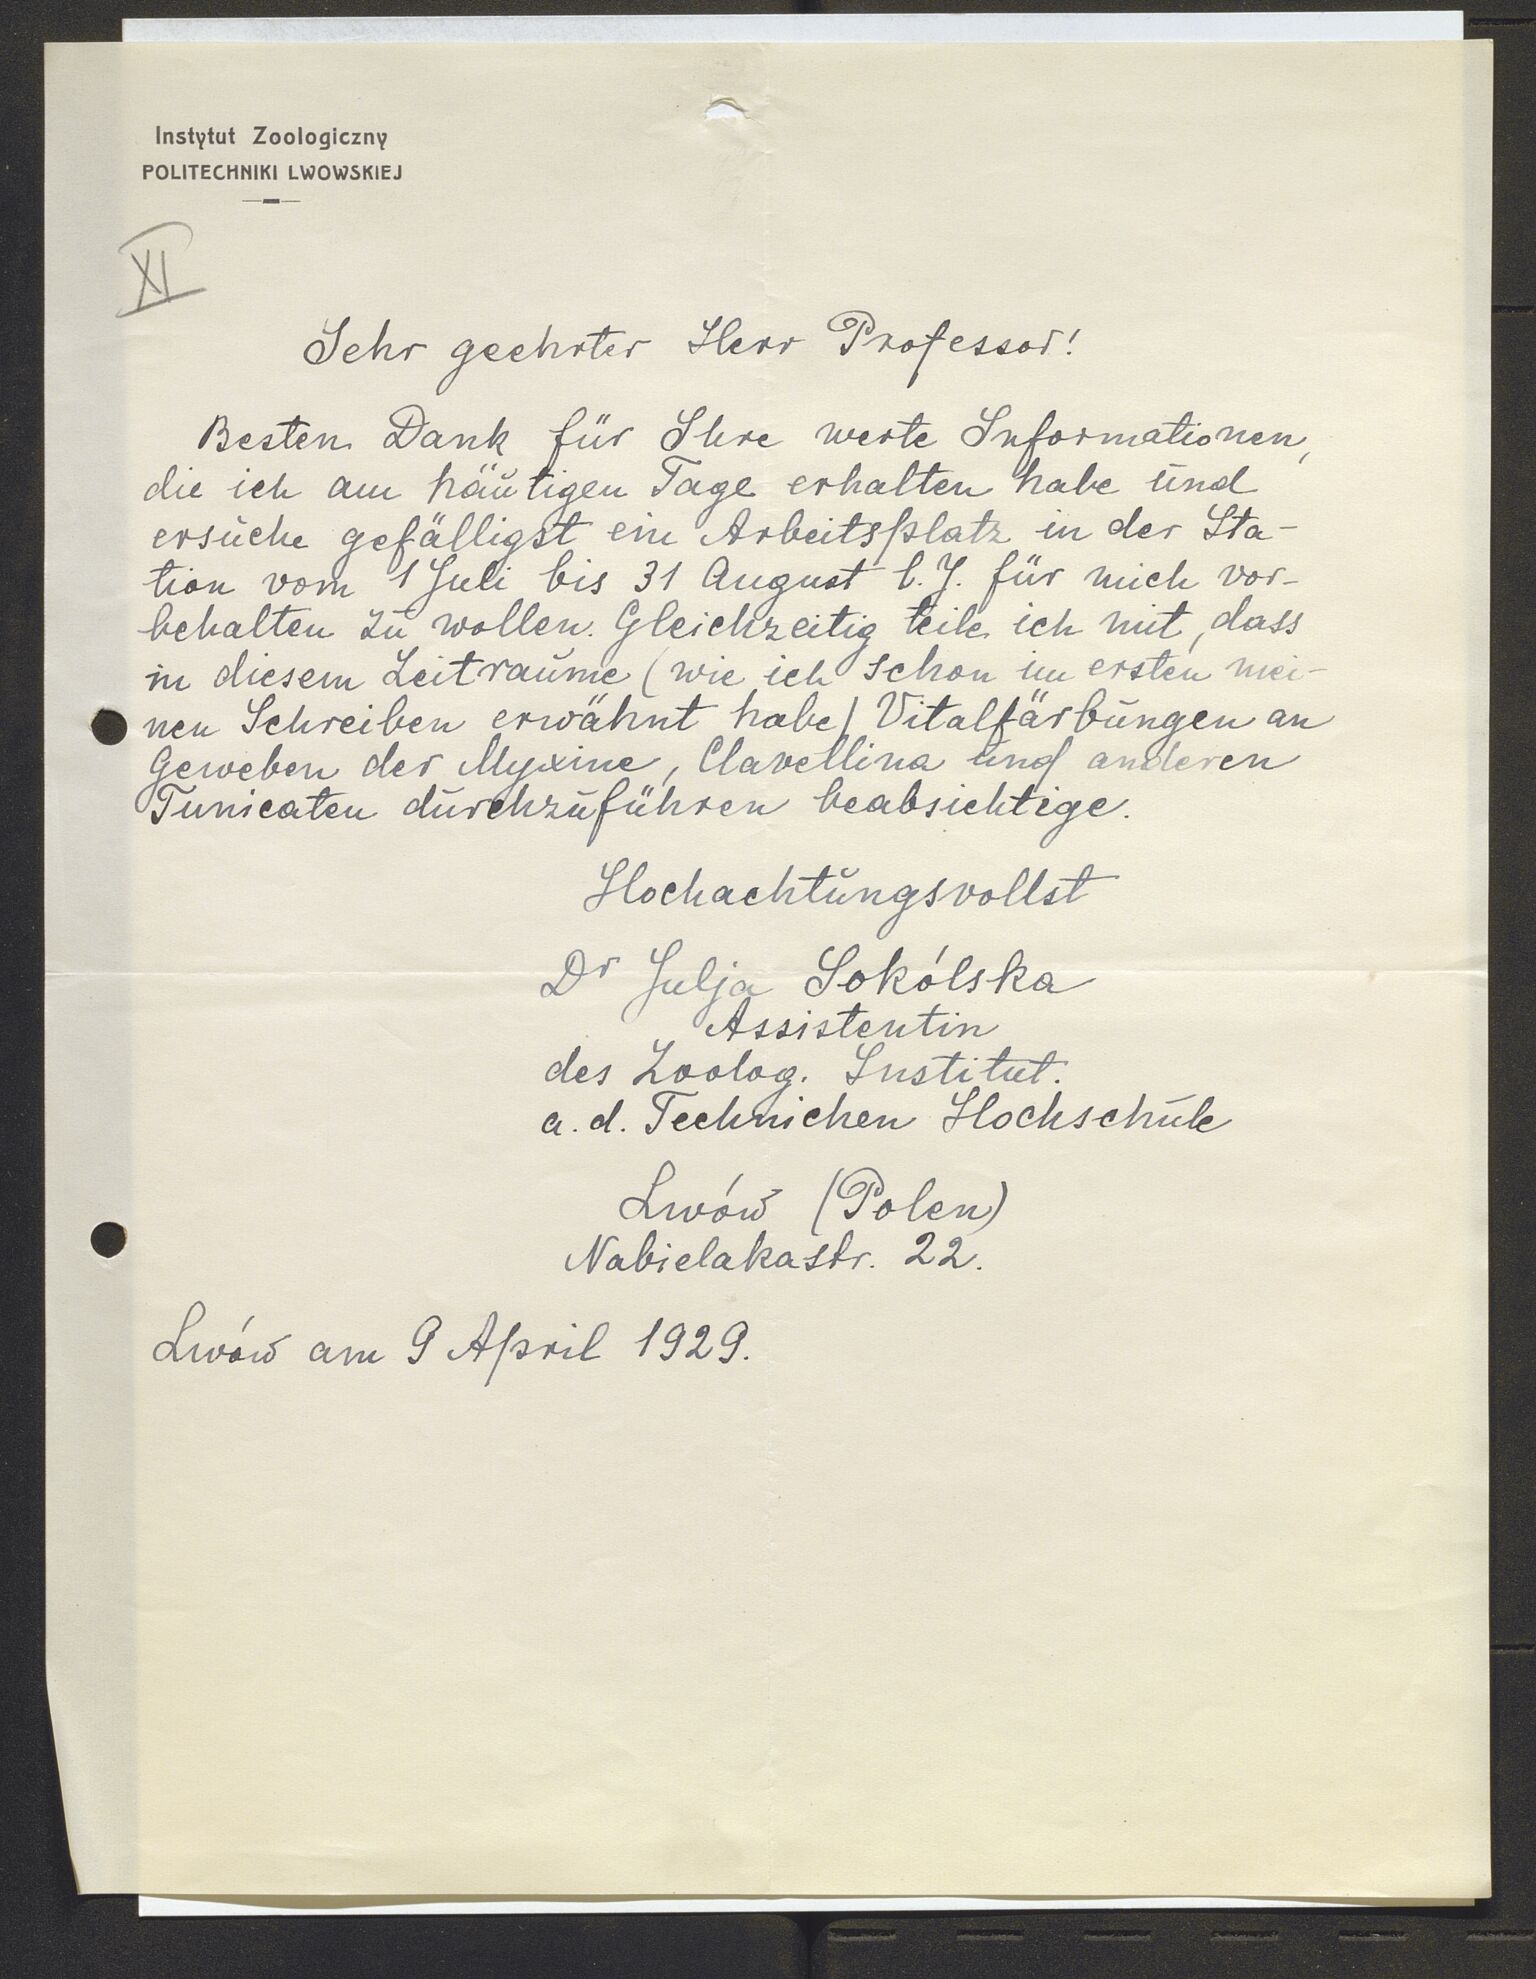 Instytut Zoologiczny
POLITECHNIKI LWOWSKIEJ
XI
Sehr geehrter Herr Professor!
Besten Dank für Ihre werte Informationen,
die ich am häutigen Tage erhalten habe und
ersuche gefälligst ein Arbeitsplatz in der Sta-
tion vom 1 Juli bis 31 August l. J. für mich vor-
behalten zu wollen. Gleichzeitig teile ich mit, dass
in diesem Zeitraume (wie ich schon im ersten mei-
nen Schreiben erwähnt habe) Vitalfärbungen an
Geweben der Myxine, Clavellina und anderen
Tunicaten durchzuführen beabsichtige.
Hochachtungsvollst
Dr Julja Sokólska
Assistentin
des Zoolog. Institut.
a. d. Technichen Hochschule
Lwów (Polen)
Nabielakastr. 22.
Lwów am 9 April 1929.